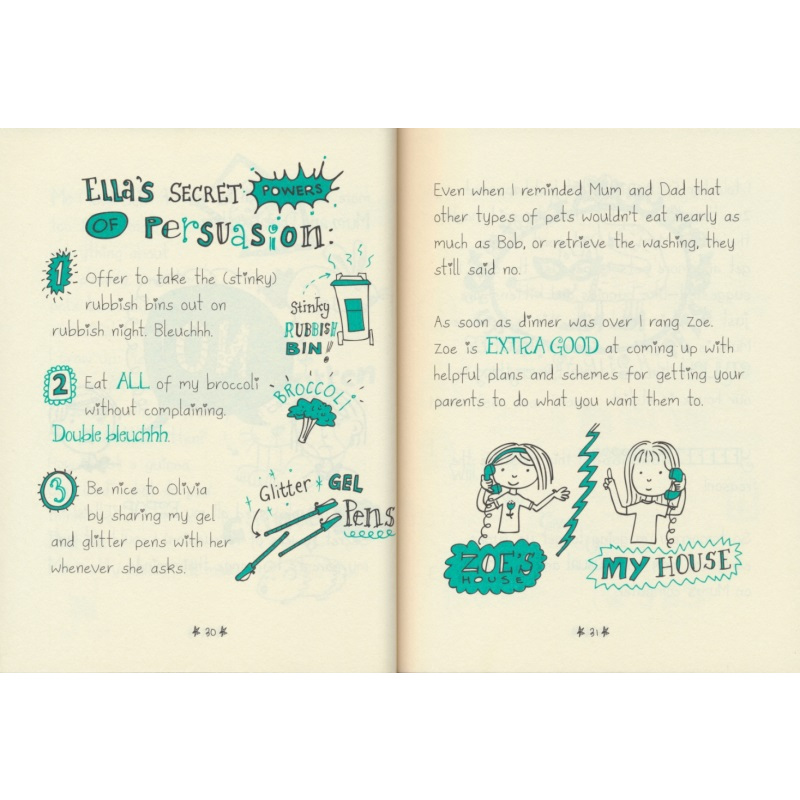 ELLA'S SECRET POWERS
OF PERSUASION:
1 Offer to take the (stinky)
rubbish bins out on
rubbish night. Bleuchhh.
Stinky
RUBBISH
BIN!
2 Eat ALL of my broccoli
without complaining.
Double bleuchhh.
BROCCOLI
3 Be nice to Olivia
by sharing my gel
and glitter pens with her
whenever she asks.
Glitter * GEL
Pens
30
Even when I reminded Mum and Dad that
other types of pets wouldn't eat nearly as
much as Bob, or retrieve the washing, they
still said no.
As soon as dinner was over I rang Zoe.
Zoe is EXTRA GOOD at coming up with
helpful plans and schemes for getting your
parents to do what you want them to.
ZOE'S
HOUSE
MY HOUSE
31